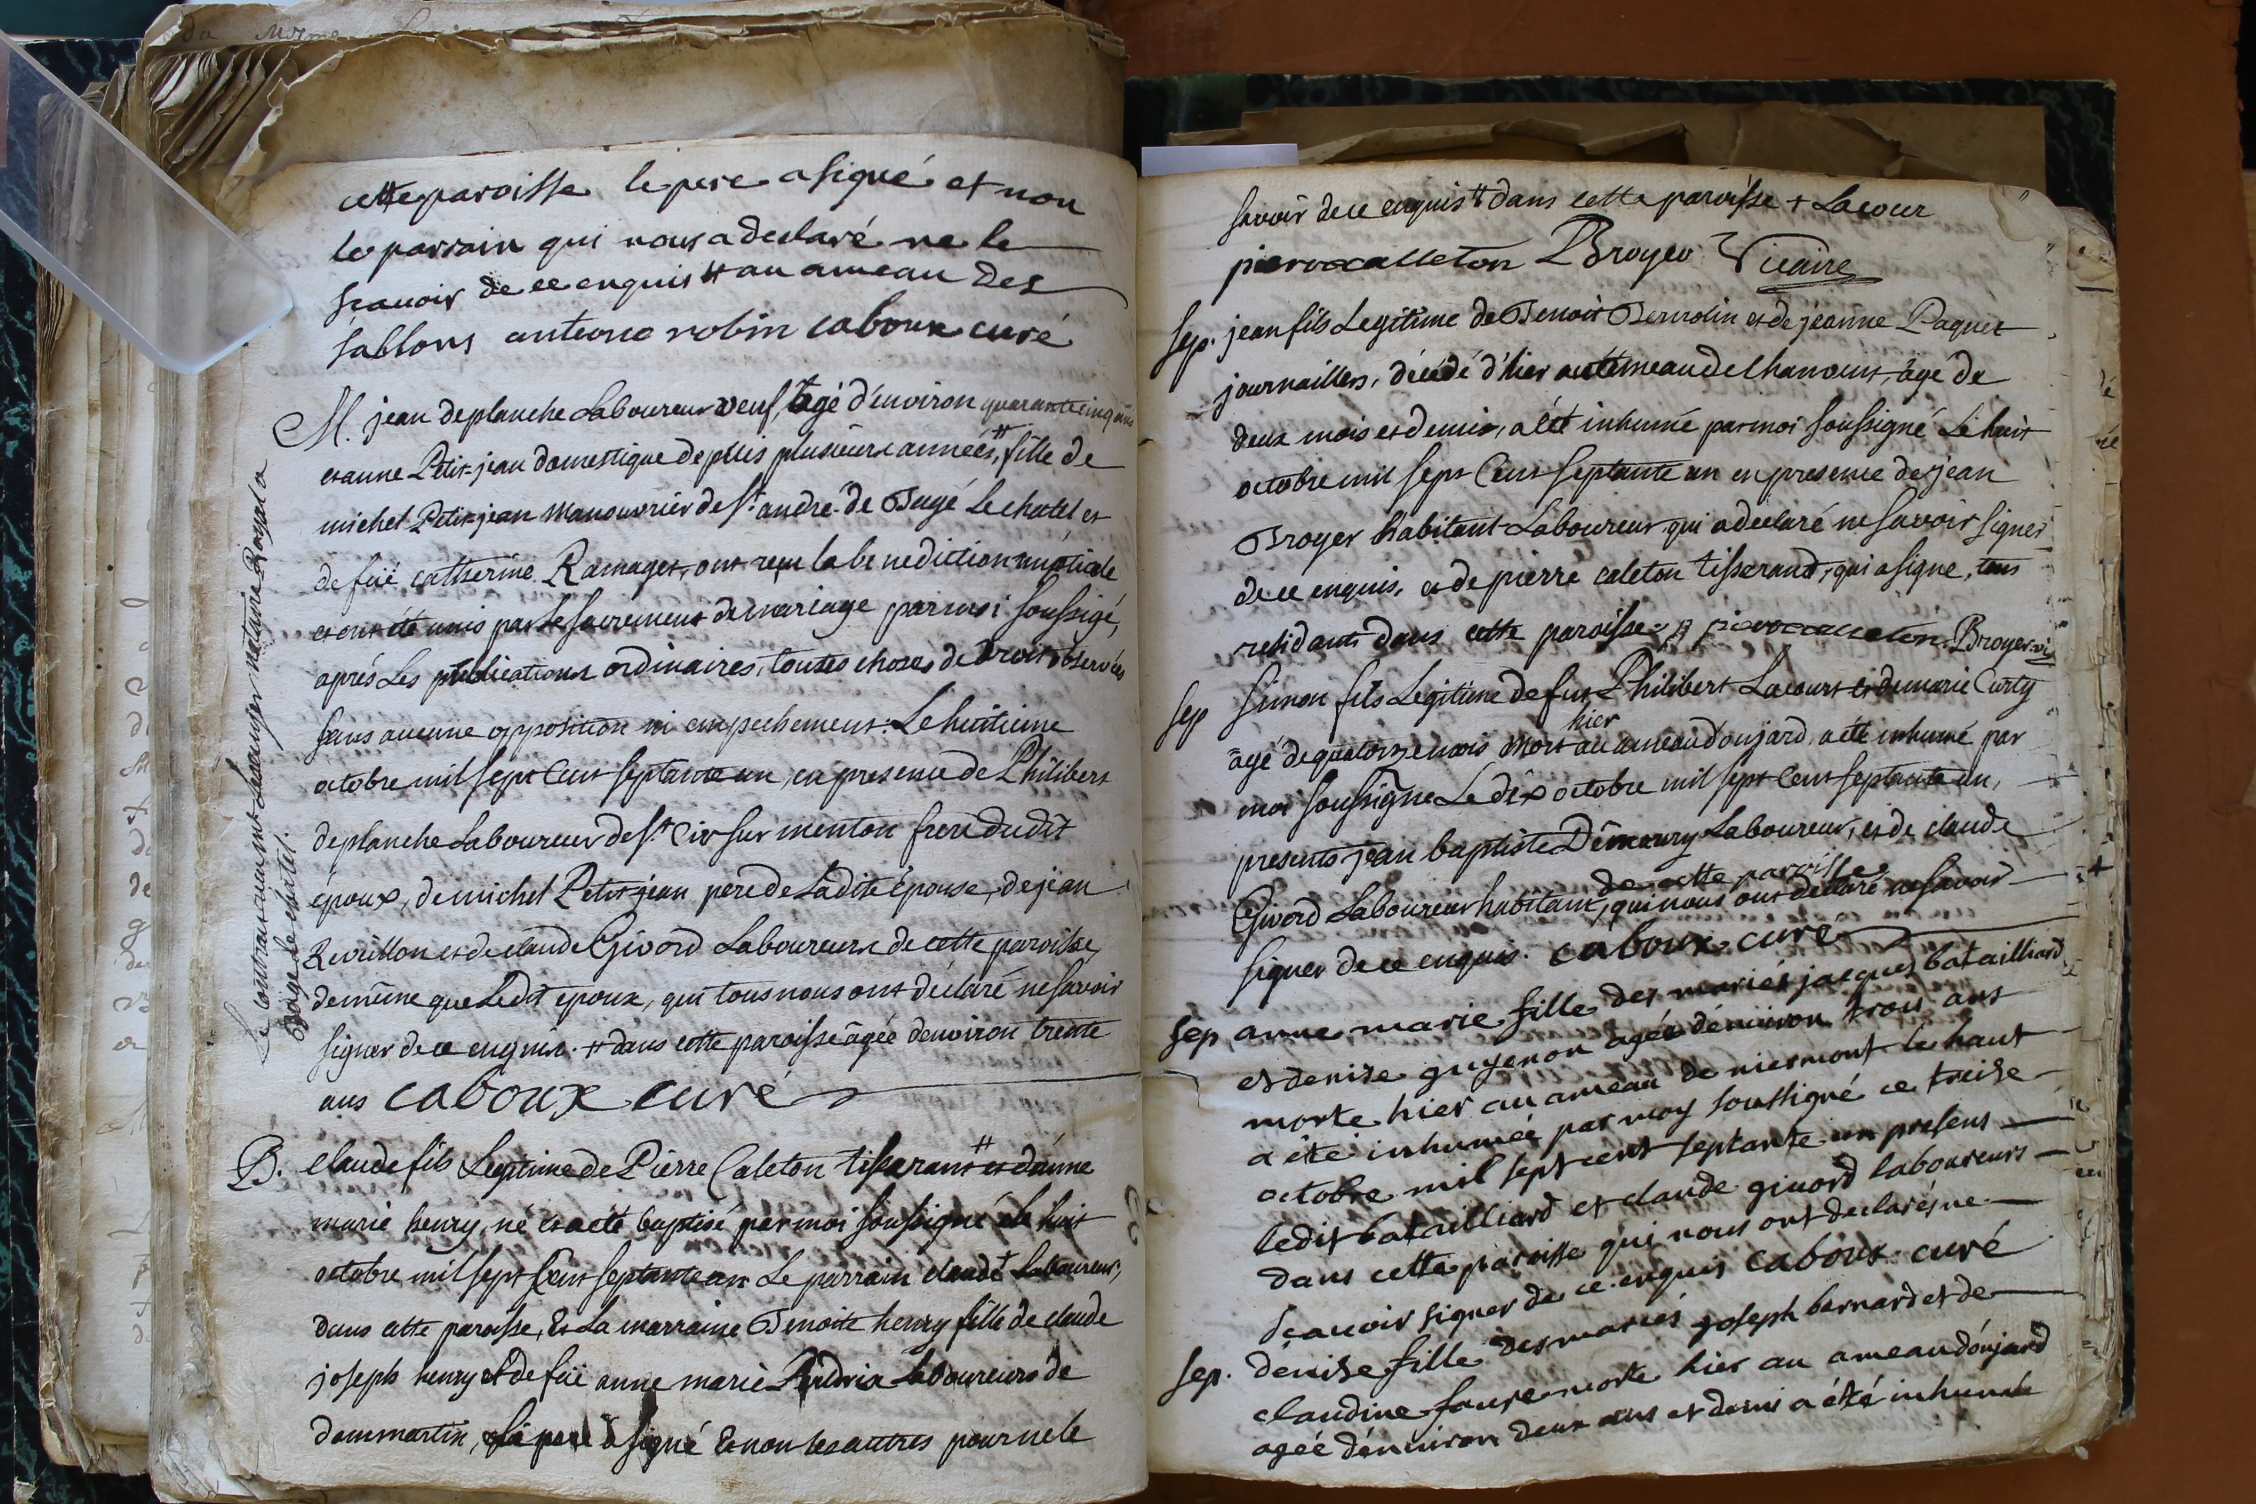 cette paroisse le pere a signé et non
le parrain qui nous a declaré ne le
sçavoir de ce enquis # au ameau des
sablons anteone robin caboux curé
M. jean deplanche Laboureur veuf, âgé d'environ quarante cinq ans
et anne Petit-jean domestique depuis plusieurs années, # fille de
michel Petit-jean manouvrier de St. andré de Bagé Le chatel et
de fuë catherine Ramaget, ont reçu la benediction nuptiale
et ont été unis par Le sacrement de mariage par moi soussigé,
aprés Les publications ordinaires, toutes choses de Droit observées
sans aucune opposition ni empechement. Le huitieme
octobre mil sept Cent septante un, en presence de Philibert
deplanche Laboureur de St. Cir sur menton frere dudit
époux, de michel Petit-jean pere de Ladite Épouse, de jean
Revillon et de claude Givord Laboureurs de cette paroisse,
de même que Ledit époux, qui tous nous ont déclaré ne savoir
signer de ce enquis. # dans cette paroisse âgée d'environ trente
ans caboux curé
Le Contrat avenant Beauger notaire Royal a
Bagé Le chatel.
B. Claude fils Legitime de Pierre Caleton tisserant # et d'anne
marie henry, né et a été baptisé par moi soussigné le huit
octobre mil sept Cent septante un Le parrain claude + Laboureur,
dans cette paroisse, Et La marraine Benoite henry fille de claude
joseph henry et de fuë anne marie Laboureurs de
dommartin, Le pere a signé Et non les autres pour ne le
savoir de ce enquis # dans cette paroisse + Lacour
pierre calleton Broyer Vicaire
sep. jean fils Legitime de Benoit Bernolin et de jeanne Paquet
journailliers, décédé d'hier au ameau de Chanoins, âgé de
deux mois et demie, a été inhumé par moi soussigné Le huit
octobre mil sept Cent septante un en presence de jean
Broyer habitant Laboureur qui a declaré ne savoir signer
de ce enquis, et de pierre caleton tisserand, qui a signé, tous
residants dans cette paroisse. pierre calleton. Broyer vic
sep Simon fils Legitime de fut Philibert Lacourt et de marie Curty
âgé de quatorze mois mort hier au ameau d'onjard, a été inhumé par
moi soussigné Le dix octobre mil sept Cent septante un,
presents jean baptiste Laboureur, et de claude
Givord Laboureur habitant de cette paroisse, qui nous ont declaré ne savoir
signer de ce enquis. caboux curé
sep anne marie fille des mariés jacques batailliard
et denise guyenon agée d'environ trois ans
morte hier au ameau de niermont le haut
a été inhumée par moy soussigné ce treise
octobre mil sept cent septante un presens
ledit batailliard et claude givord laboureurs
dans cette paroisse qui nous ont declarés ne
sçavoir signer de ce enquis caboux curé
sep. dénise fille des mariés joseph bernard et de
claudine faure morte hier au ameau d'onjard
agée d'environ deux ans et demi a été inhumée